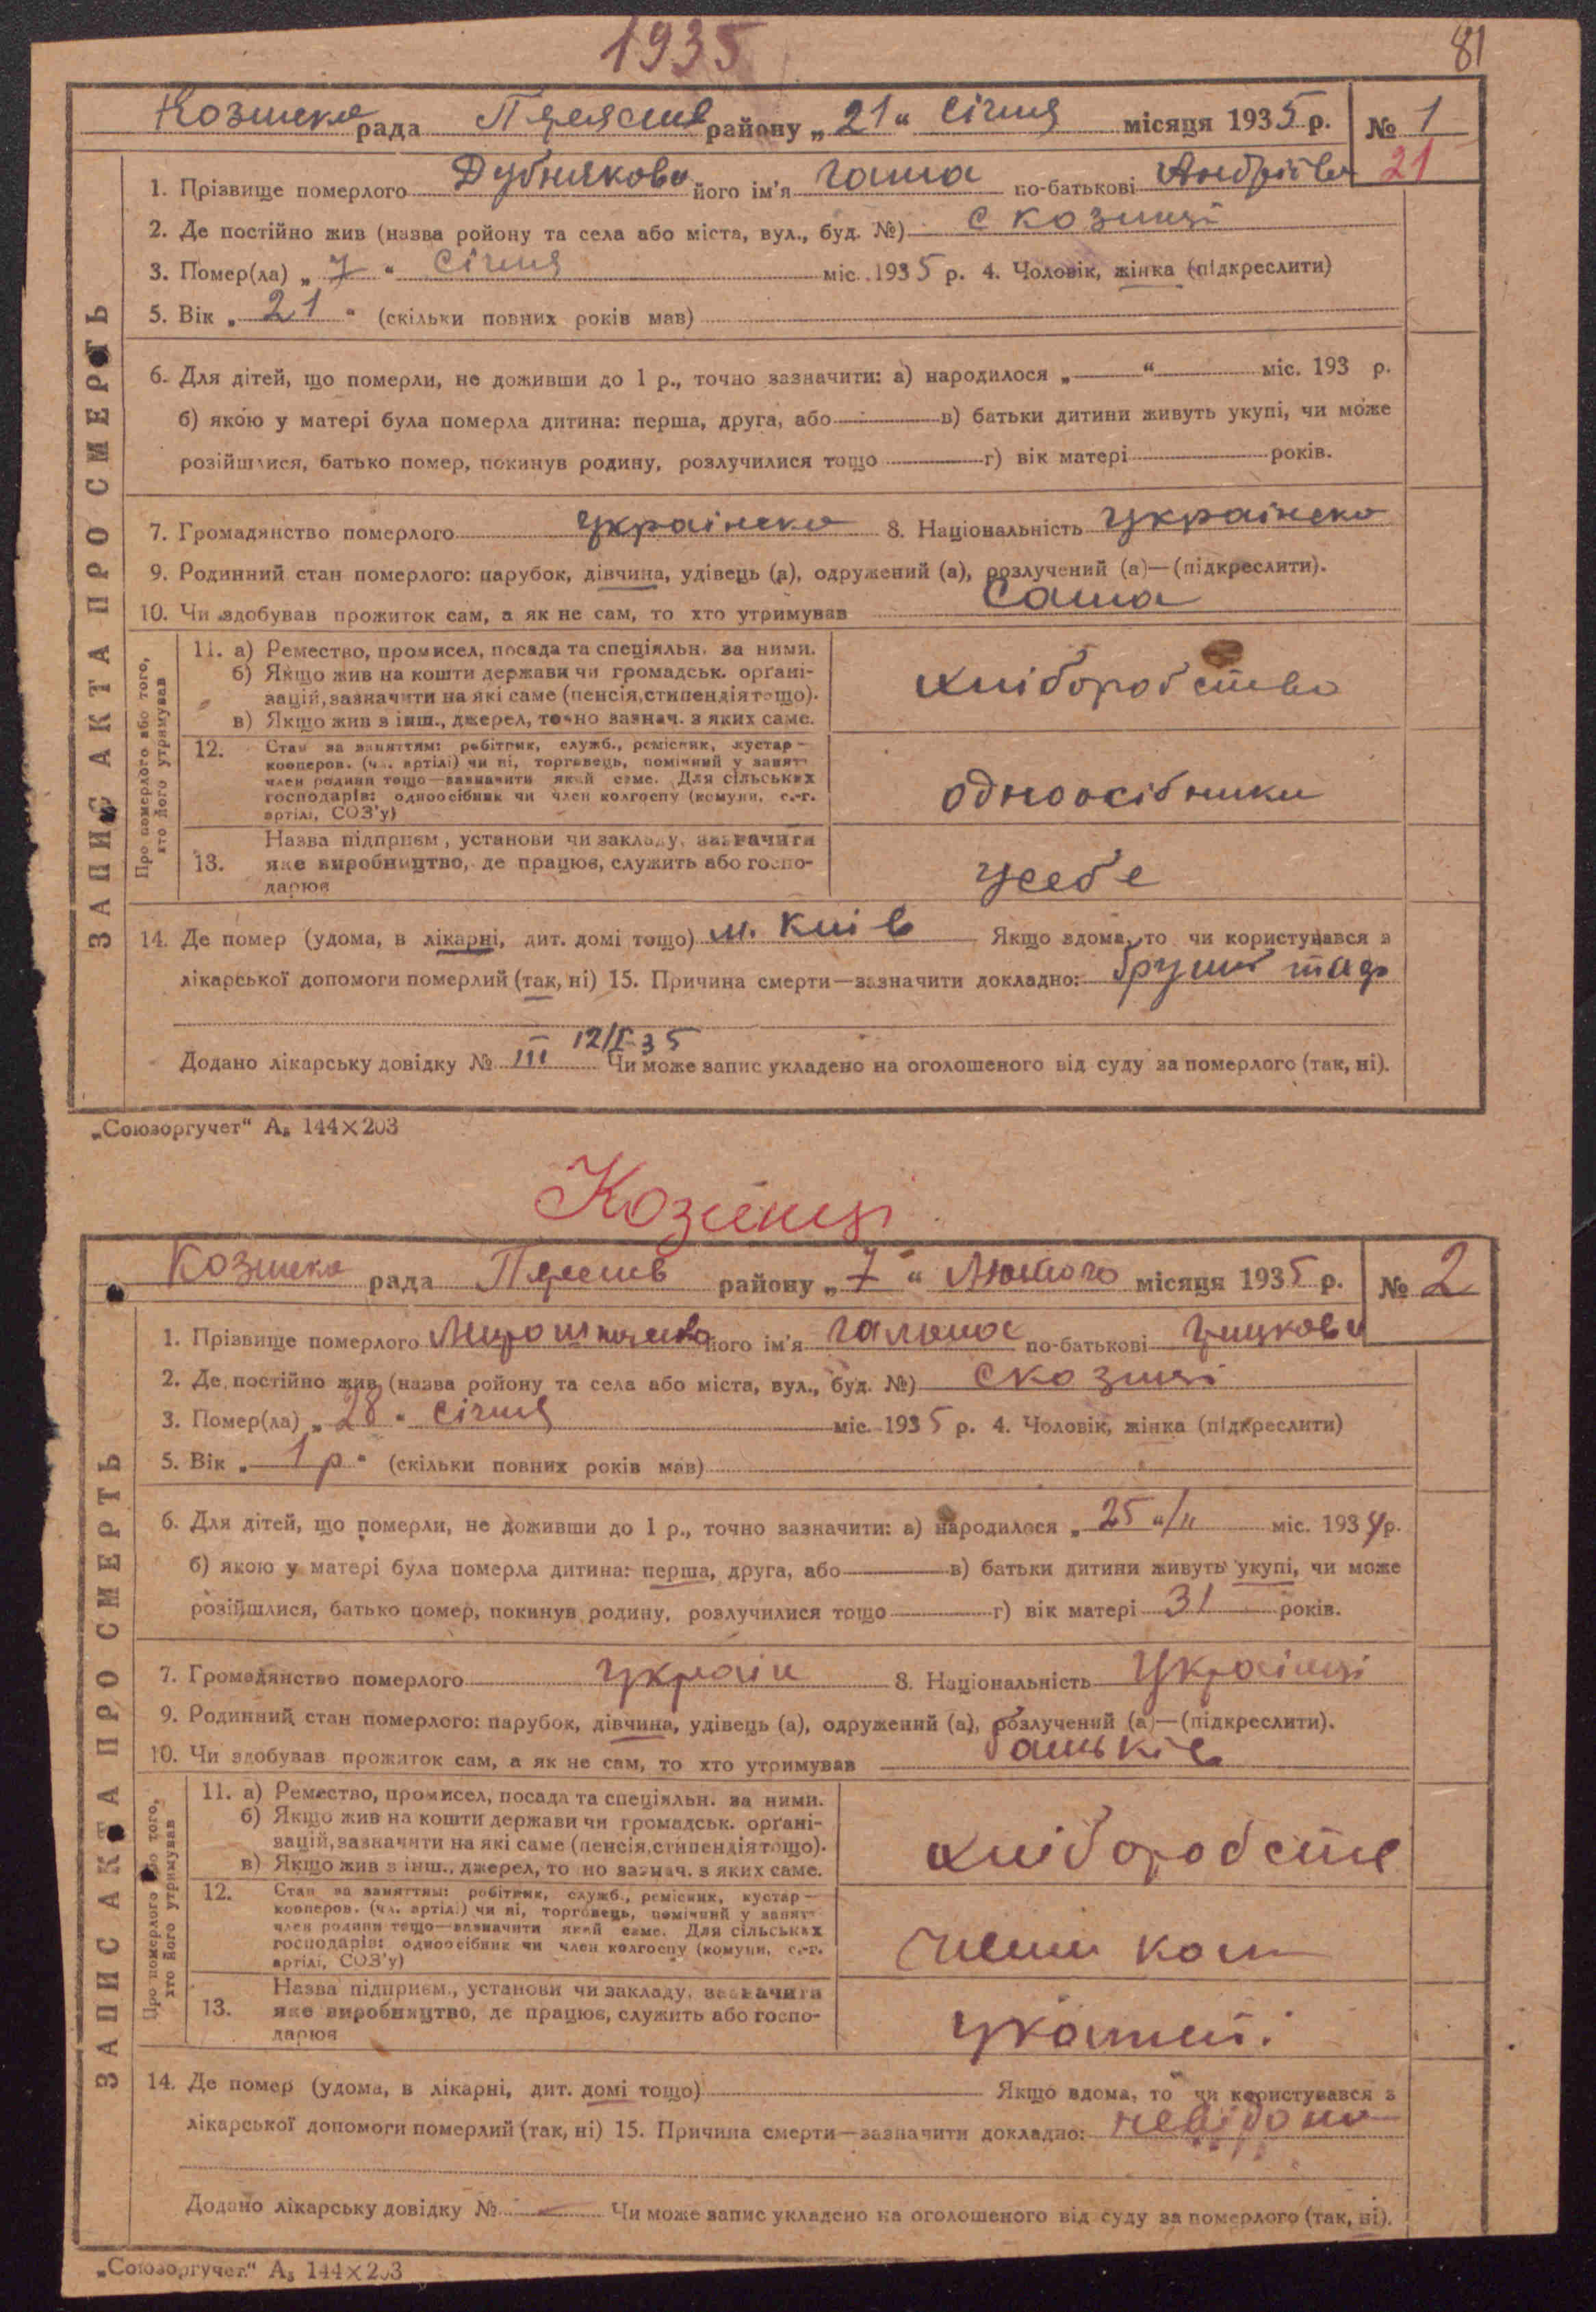 1935
81
рада району „21“ Січня місяця 1935 р. № 1
21
1. Прізвище померлого Дубнякова його ім'я по-батькові Андріїв
2. Де постійно жив (назва ройону та села або міста, вул., буд. №) с козинці
3. Помер(ла) „7“ Січня міс. 1935 р. 4. Чоловік, жінка (підкреслити)
5. Вік „21“ (скільки повних років мав)
6. Для дітей, що померли, не доживши до 1 р., точно зазначити: а) народилося „—“ міс. 193 р.
б) якою у матері була померла дитина: перша, друга, або — в) батьки дитини живуть укупі, чи може
розійшлися, батько помер, покинув родину, розлучилися тощо — г) вік матері — років.
7. Громадянство померлого українська 8. Національність українка
9. Родинний стан померлого: парубок, дівчина, удівець (а), одружений (а), розлучений (а)—(підкреслити).
10. Чи здобував прожиток сам, а як не сам, то хто утримував Сама
ЗАПИС АКТА ПРО СМЕРТЬ
Про померлого або того, хто його утримував
11. а) Ремество, промисел, посада та спеціяльн. за ними.
б) Якщо жив на кошти держави чи громадськ. орґані-
зацій, зазначити на які саме (пенсія, стипендія тощо).
в) Якщо жив з інш., джерел, точно зазнач. з яких саме.
хліборобство
12. Стан за заняттям: робітник, служб., ремісник, кустар—
кооперов. (чл. артілі) чи ні, торговець, помічний у занят.
член родини тощо—зазначити який саме. Для сільських
господарів: одноосібник чи член колгоспу (комуни, с.-г.
артілі, СОЗ'у)
одноосібники
13. Назва підприєм., установи чи закладу, зазначити
яке виробництво, де працює, служить або госпо-
дарює
усебе
14. Де помер (удома, в лікарні, дит. домі тощо) м. Київ Якщо вдома, то чи користувався з
лікарської допомоги померлий (так, ні) 15. Причина смерти—зазначити докладно:
12/I-35
Додано лікарську довідку № III Чи може запис укладено на оголошеного від суду за померлого (так, ні).
„Союзоргучет“ А₅ 144×203
Козинці
рада району „7“ Лютого місяця 1935 р. № 2
1. Прізвище померлого його ім'я галина по-батькові
2. Де постійно жив (назва ройону та села або міста, вул., буд. №) с козинці
3. Помер(ла) „28“ січня міс. 1935 р. 4. Чоловік, жінка (підкреслити)
5. Вік „1 р“ (скільки повних років мав)
6. Для дітей, що померли, не доживши до 1 р., точно зазначити: а) народилося „25“/II міс. 1934 р.
б) якою у матері була померла дитина: перша, друга, або — в) батьки дитини живуть укупі, чи може
розійшлися, батько помер, покинув родину, розлучилися тощо — г) вік матері 31 років.
7. Громадянство померлого україн 8. Національність Українці
9. Родинний стан померлого: парубок, дівчина, удівець (а), одружений (а), розлучений (а)—(підкреслити).
10. Чи здобував прожиток сам, а як не сам, то хто утримував батьків
ЗАПИС АКТА ПРО СМЕРТЬ
Про померлого або того, хто його утримував
11. а) Ремество, промисел, посада та спеціяльн. за ними.
б) Якщо жив на кошти держави чи громадськ. орґані-
зацій, зазначити на які саме (пенсія, стипендія тощо).
в) Якщо жив з інш., джерел, точно зазнач. з яких саме.
хліборобств
12. Стан за заняттям: робітник, служб., ремісник, кустар—
кооперов. (чл. артілі) чи ні, торговець, помічний у занят.
член родини тощо—зазначити який саме. Для сільських
господарів: одноосібник чи член колгоспу (комуни, с.-г.
артілі, СОЗ'у)
13. Назва підприєм., установи чи закладу, зазначити
яке виробництво, де працює, служить або госпо-
дарює
14. Де помер (удома, в лікарні, дит. домі тощо) Якщо вдома, то чи користувався з
лікарської допомоги померлий (так, ні) 15. Причина смерти—зазначити докладно: невідомо
Додано лікарську довідку № — Чи може запис укладено на оголошеного від суду за померлого (так, ні).
„Союзоргучет“ А₅ 144×203